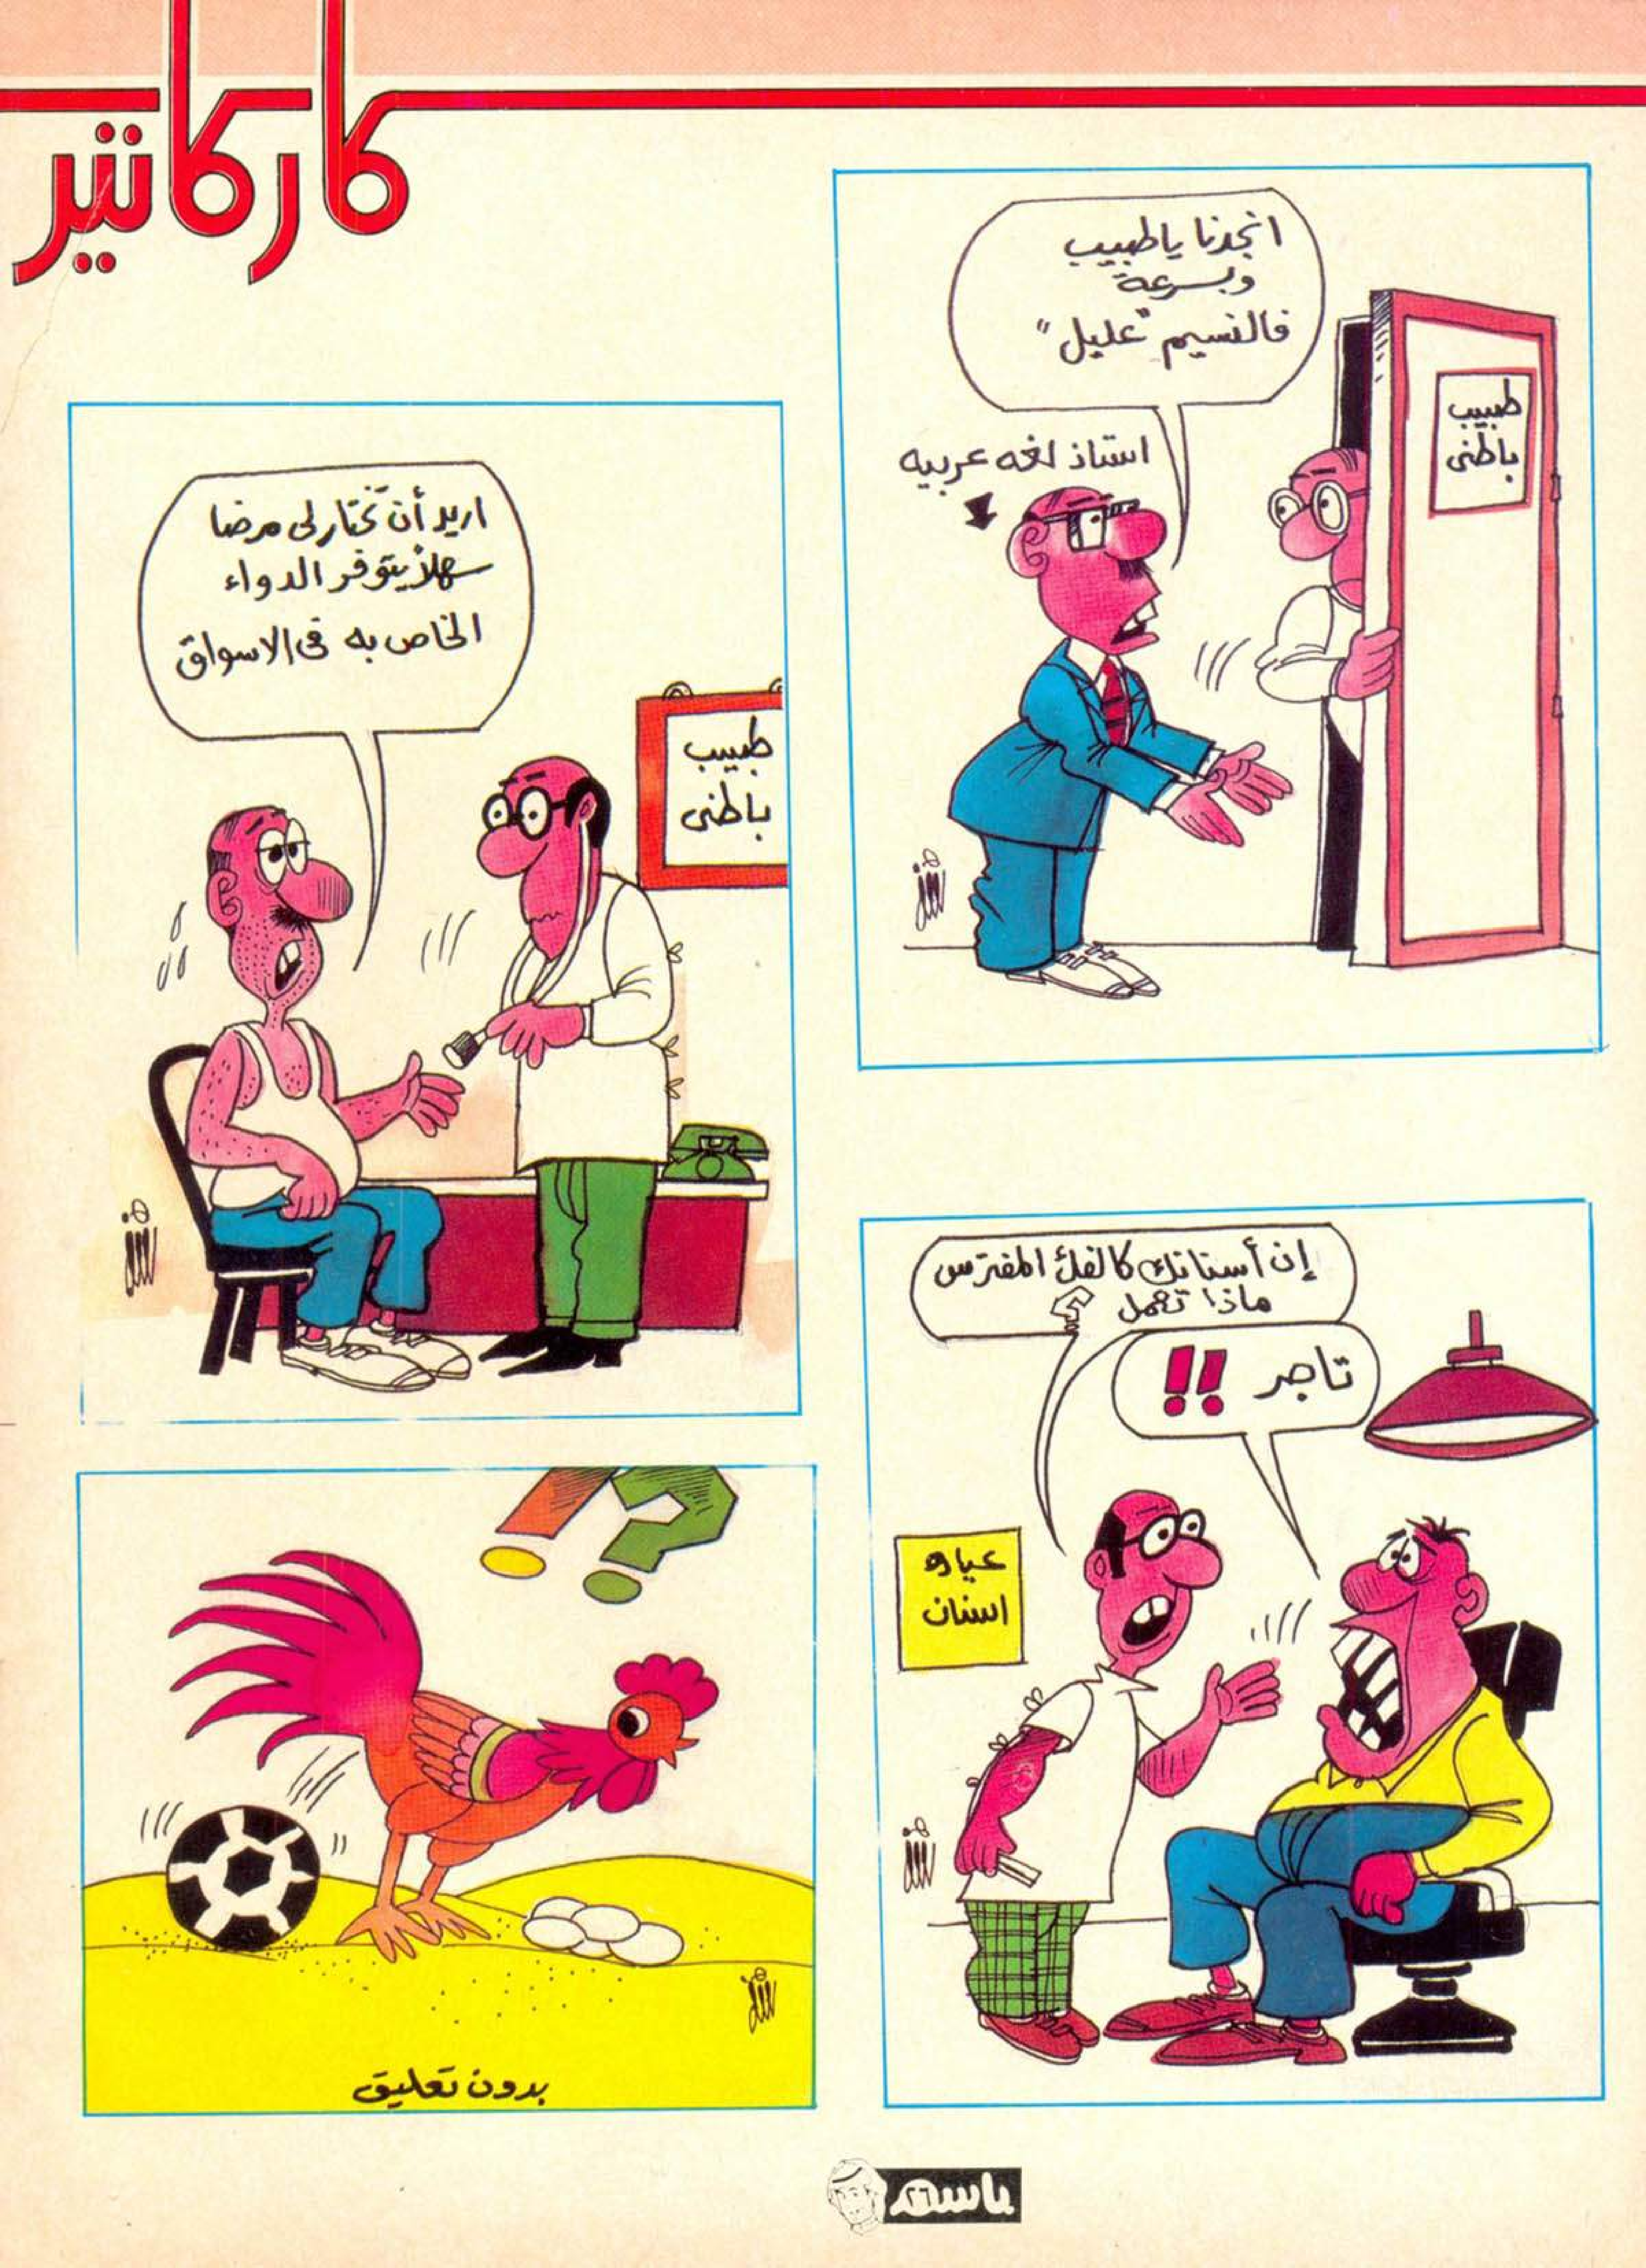 كاركاتير
انجدنا ياطبيب
وبسرعة
فالنسيم "عليل"
استاذ لغه عربيه
طبيب
باطنى
اريد أن تختار لى مرضا
سهلاً يتوفر الدواء
الخاص به فى الاسواق
طبيب
باطنى
إن أسنانك كالفك المفترس
ماذا تعمل ؟
تاجر !!
عياده
اسنان
بدون تعليق
باسم
٢٦